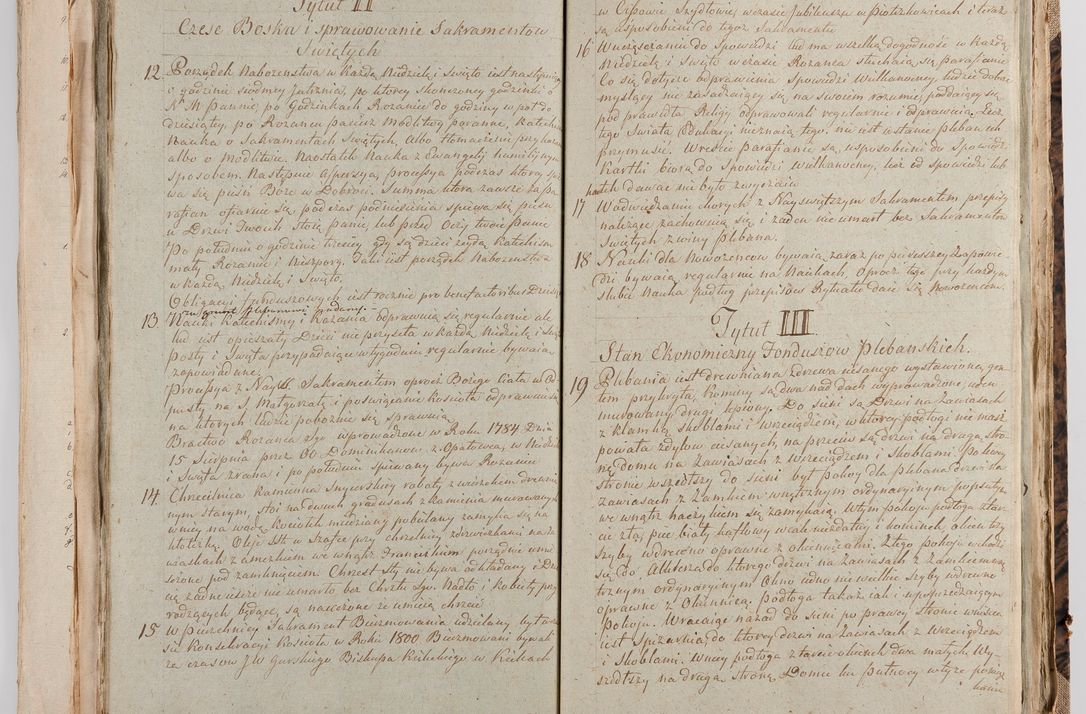 Tytuł II
Cześć Boska i sprawowanie Sakramentow
Swiętych
12 Porządek Nabozenstwa w Każdą Niedzielę i Swięto iest następuiący
o godzinie siodmey Jutrznia, po ktorey skonczoney godzinki o
N. M. Pannie po Godzinkach Rozaniec do godziny w poł do
dziesiąty, po Rozancu pacierz Modlitwy poranne, Katechizm
Nauka o Sakramentach Swiętych, albo tłomaczenie przykazan
albo o Modlitwie. Naostatek Nauka z Ewangelij
sposobem. Następuie Aspersya, processya podczas ktorey spie-
wa się pieśń Boże w Dobroci. Summa ktora zawsze za pa-
rafian ofiarnie się, podczas podniesienia spiewa się piesn
u Drzwi Twoich stoię panie, lub przed Oczy twoie panie
Po południu o godzinie trzeciey gdy są dzieci zeydą Katechizm
mały Rozaniec i Nieszpory. Taki iest porządek Nabozenstwa
w Każdą Niedzielę i Swięto.
Obligacyi funduszowych iest rocznie pro benefactoribus
13 Nauki Katechizmy i Kazania odprawuią się regularnie ale
lud iest opieszały Dzieci nie przysyła w Każdą Niedzielę i
Posty i Swięta przypadaiące w tygodniu regularnie bywaią
zapowiadane.
Processya z Nays. Sakramentem oprocz Bożego Ciała w Od-
pusty na S. Małgorzatę i poswięcanie Koscioła odprawuie się
na ktorych ludzie poboznie się sprawuią
Bractwo Rozanca Sgo wprowadzone w Roku 1784 Dnia
15 Sierpnia przez OO. Dominikanow z Opatowca, w Niedziele
i Swięta zrana i po południu spiewany bywa Rozaniec
14 Chrzcielnica Kamienna Snycerskiy roboty z wierzchem drewnia-
nym starym, stoi na dwuch gradusach z kamienia murowanych
w niey na wodę Kociołek miedziany pobielany zamyka się na
kłotkę. Oleje SS. w Szafce przy chrzcielnicy z drzwiczkami na za-
wiaskach z zameczkiem we wnątrz Franciszkum porządnie umie-
szczone pod zamknięciem. Chrzest Sty nie bywa odkładany i Dzie-
cię żadne ieszcze nie umarło bez Chrztu Sgo. Nadto i Kobiety przy
rodzących będące, są nauczone ze umieią chrzcić
15 W Pierzchnicy Sakrament Bierzmowania udzielany był
su konsekracyi Koscioła w Roku 1800 Bierzmowani bywali
za czasow JW Gurskiego Biskupa Kieleckiego w Kielcach
w Ciszowie Szydłowie w czasie Jubileuszu w Piotrkowicach i teraz
są usposobieni do tegoż Sakramentu
16 Wuczęszczaniu do Spowiedzi lud ma wszelką dogodność w Każdą
Niedzielę i Swięto w czasie Rozanca słuchaią się parafianie
Co się dotycze odprawienia Spowiedzi Wielkanocney, ludzie dobrze
myslący nie zasadzaiący się na swoiem rozumie poddaiący się
pod prawidła Religij odprawowali regularnie i odprawuią. Lecz
tego Swiata Edukacyi nieznaią tego, nie iest w stanie pleban ich
przymusić. Wreście parafianie są usposobieni do Spowiedzi
Kartki biorą do Spowiedzi wielkanocney, lecz od spowiedzi lub
kartek dawac nie było zwyczaiu
17 W odwiedzaniu chorych z Nayswiętszym Sakramentem przepisy
należące zachowuią się i żaden nie umarł bez Sakramentow
Swiętych z winy plebana.
18 Nauki dla Nowozencow bywaią zaraz po pierwszey Zapowie-
dzi bywaią regularnie na Naukach, oprocz tego przy kazdym
slubie Nauka podług przepisow Rytuału daie się Nowozencom.
Tytuł III
Stan Ekonomiczny Funduszow Plebanskich.
19 Plebania iest drewniana z drzewa cisanego wystawiona, gon-
tem przykryta, kominy są dwa nad dach wyprowadzone, ieden
murowany drugi lepiony. Do sieni są Drzwi na zawiasach
z klamką skoblami i wrzeciądzem, w ktorey podłogi nie masz
powała z dylow cisanych, na przeciw są drzwi na drugą stro-
nę domu na Zawiasach z Wrzeciądzem i Skoblami. Po lewey
stronie wszedłszy do sieni był Pokoy dla Plebana drzwi na
zawiasach z Zamkiem wnętrznym ordynaryinym popsutym
we wnątrz haczykiem się zamykaią. W tym pokoiu podłoga z tar-
cic zła, piec biały kaflowy wcale niezdatny i kominek, okien trzy
szyby w drewno oprawne z okiennicami. Z tego Pokoiu wchodzi
się do Alkierza do ktorego drzwi na zawiasach z Zamkiem wnę-
trznym ordynaryinym Okno iedno nie wielkie szyby w drewno
oprawne z Okiennicą. Podłoga takaż iak i w poprzedzaiącym
Pokoiu. Wracaiąc nazad do sieni po prawey stronie wniscia
iest Spizarnia do ktorey drzwi na Zawiasach z Wrzeciądzem
i Skoblami. W niey podłoga z tarcic okienek dwa małych, Wy-
szedłszy na drugą stronę Domu ku Pułnocy w tyże pomie-